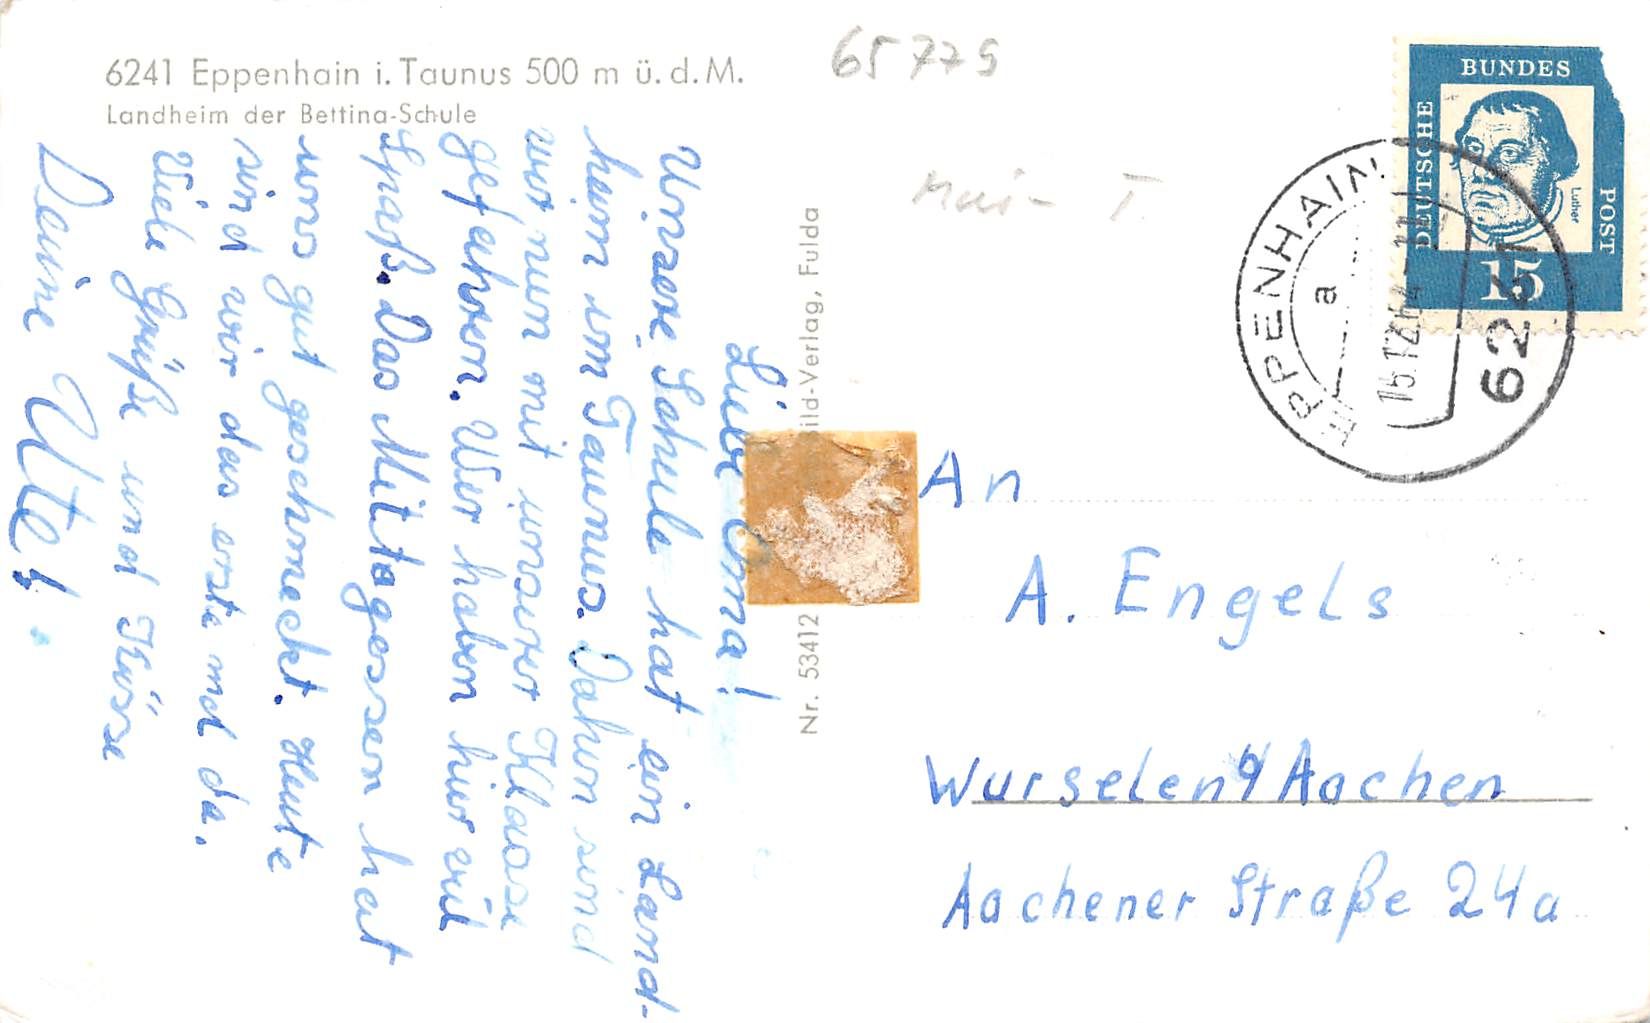 6241 Eppenhain i. Taunus 500 m ü. d. M.
Landheim der Bettina-Schule
Liebe Oma!
Unsere Schule hat ein Land-
heim im Taunus. Dahin sind
wir nun mit unserer Klasse
gefahren. Wir haben hier viel
Spaß. Das Mittagessen hat
uns gut geschmeckt. Heute
sind wir das erste mal da.
Viele Grüße und Küsse
Deine Ute!
Nr. 53412
ild-Verlag, Fulda
65779
DEUTSCHE
BUNDES
POST
Luther
15
EPPENHAIN
a
6241
An
A. Engels
Wurselen Aachen
Aachener Straße 24a